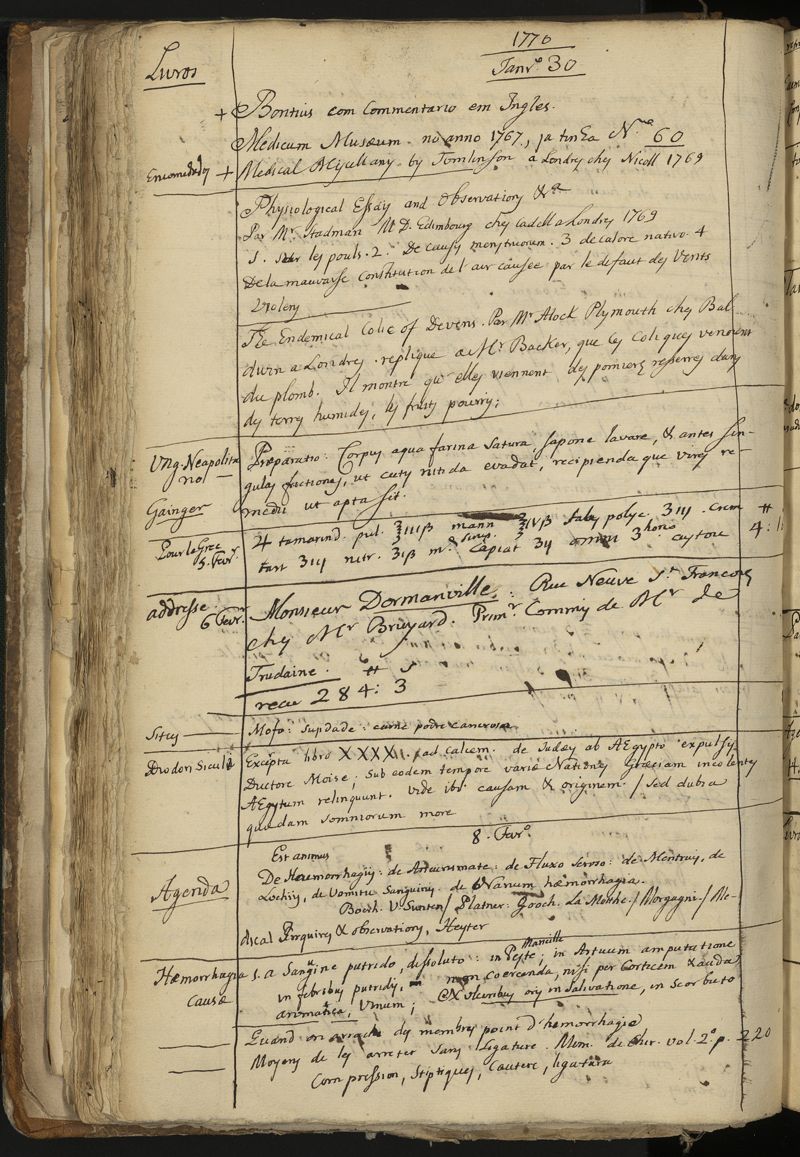 1770
Livros
Janrº 30
+ Bontius com Commentario em Ingles.
Medicum Museum. no anno 1767, ja tinha Nº 60
+ Medical Miscellany by Tomlinson a Londres chez Nicoll 1769
Physiological Essay and Observations &ª
Par Mr. Stadman M D. Edimbourg chez Cadell a Londres 1769
1. sur les pouls. 2. De Causis menstruorum. 3 de calore nativo. 4
De la mauvaise Constitution de l'air causée par le defaut des Vents
Violens
The Endemical Colic of Devons. Par Mr Alock Plymouth chez Bal-
dwin a Londres. replique a Mr. Backer, que les Coliques venoient
du plomb. Il montre qu'elles viennent des pomiers resserrés dans
des terres humides, les fruits pourris;
Ung. Neapolita
no
Gainger
Præparatio: Corpus aqua farina satura sapone lavare, & antes sin-
gulas frictiones, ut cutis nitida evadat, recipienda que vires re-
medii ut apta sit.
Pour le Grec
5. Fevr.
tamarind. pul. ʒiiiβ mann ʒivβ
tart ʒiij nitr. ʒiβ m. Capiat ʒij omni 3 horio
addresse
6 Fevr.
Monsieur Dormanville. Rue Neuve St. Francois
chez Mr Bruyard. Primr Commis de Mr de
Trudaine.
recu 284: 3
Sitis
Mofo: supdade: carne podre
Diodori Siculi
Excepta libro XXXX. ad calcem. de Judæis ab AEgypto expulsis
Ductore Moise; sub eodem tempore variæ Nationes Græciam incolentes
AEgytum relinquunt. vide ibi causam & originem / sed dubia
quædam somniorum more
8. Fevrº
Agenda
Est animus
De Hæmorrhagiis: de Aneurismate: de Fluxo seroso: de Menstruis, de
Lochiis, de Vomitu Sanguinis. de Narium hæmorrhagia.
Boerh. V. Swieten / Platner: Gooch. La Mothe. / Morgagni. / Me-
dical Enquiries & observations, Heyter
Hæmorrhagia
Causæ
1. a Sanguine putrido, dissoluto: in Peste, Marseille; in Artuum amputatione
in febribus putridis, non coercenda, nisi per Corticem
aromatica, Vinum; Ex ulceribus oris in Salivatione, in scorbuto
Quand on arrache des membres point d'hemorrhagie
Moyens de les arreter sans Ligature. Mem. de Chir. vol. 2º p. 220
Compression, Stiptiques, Cautere, ligatura